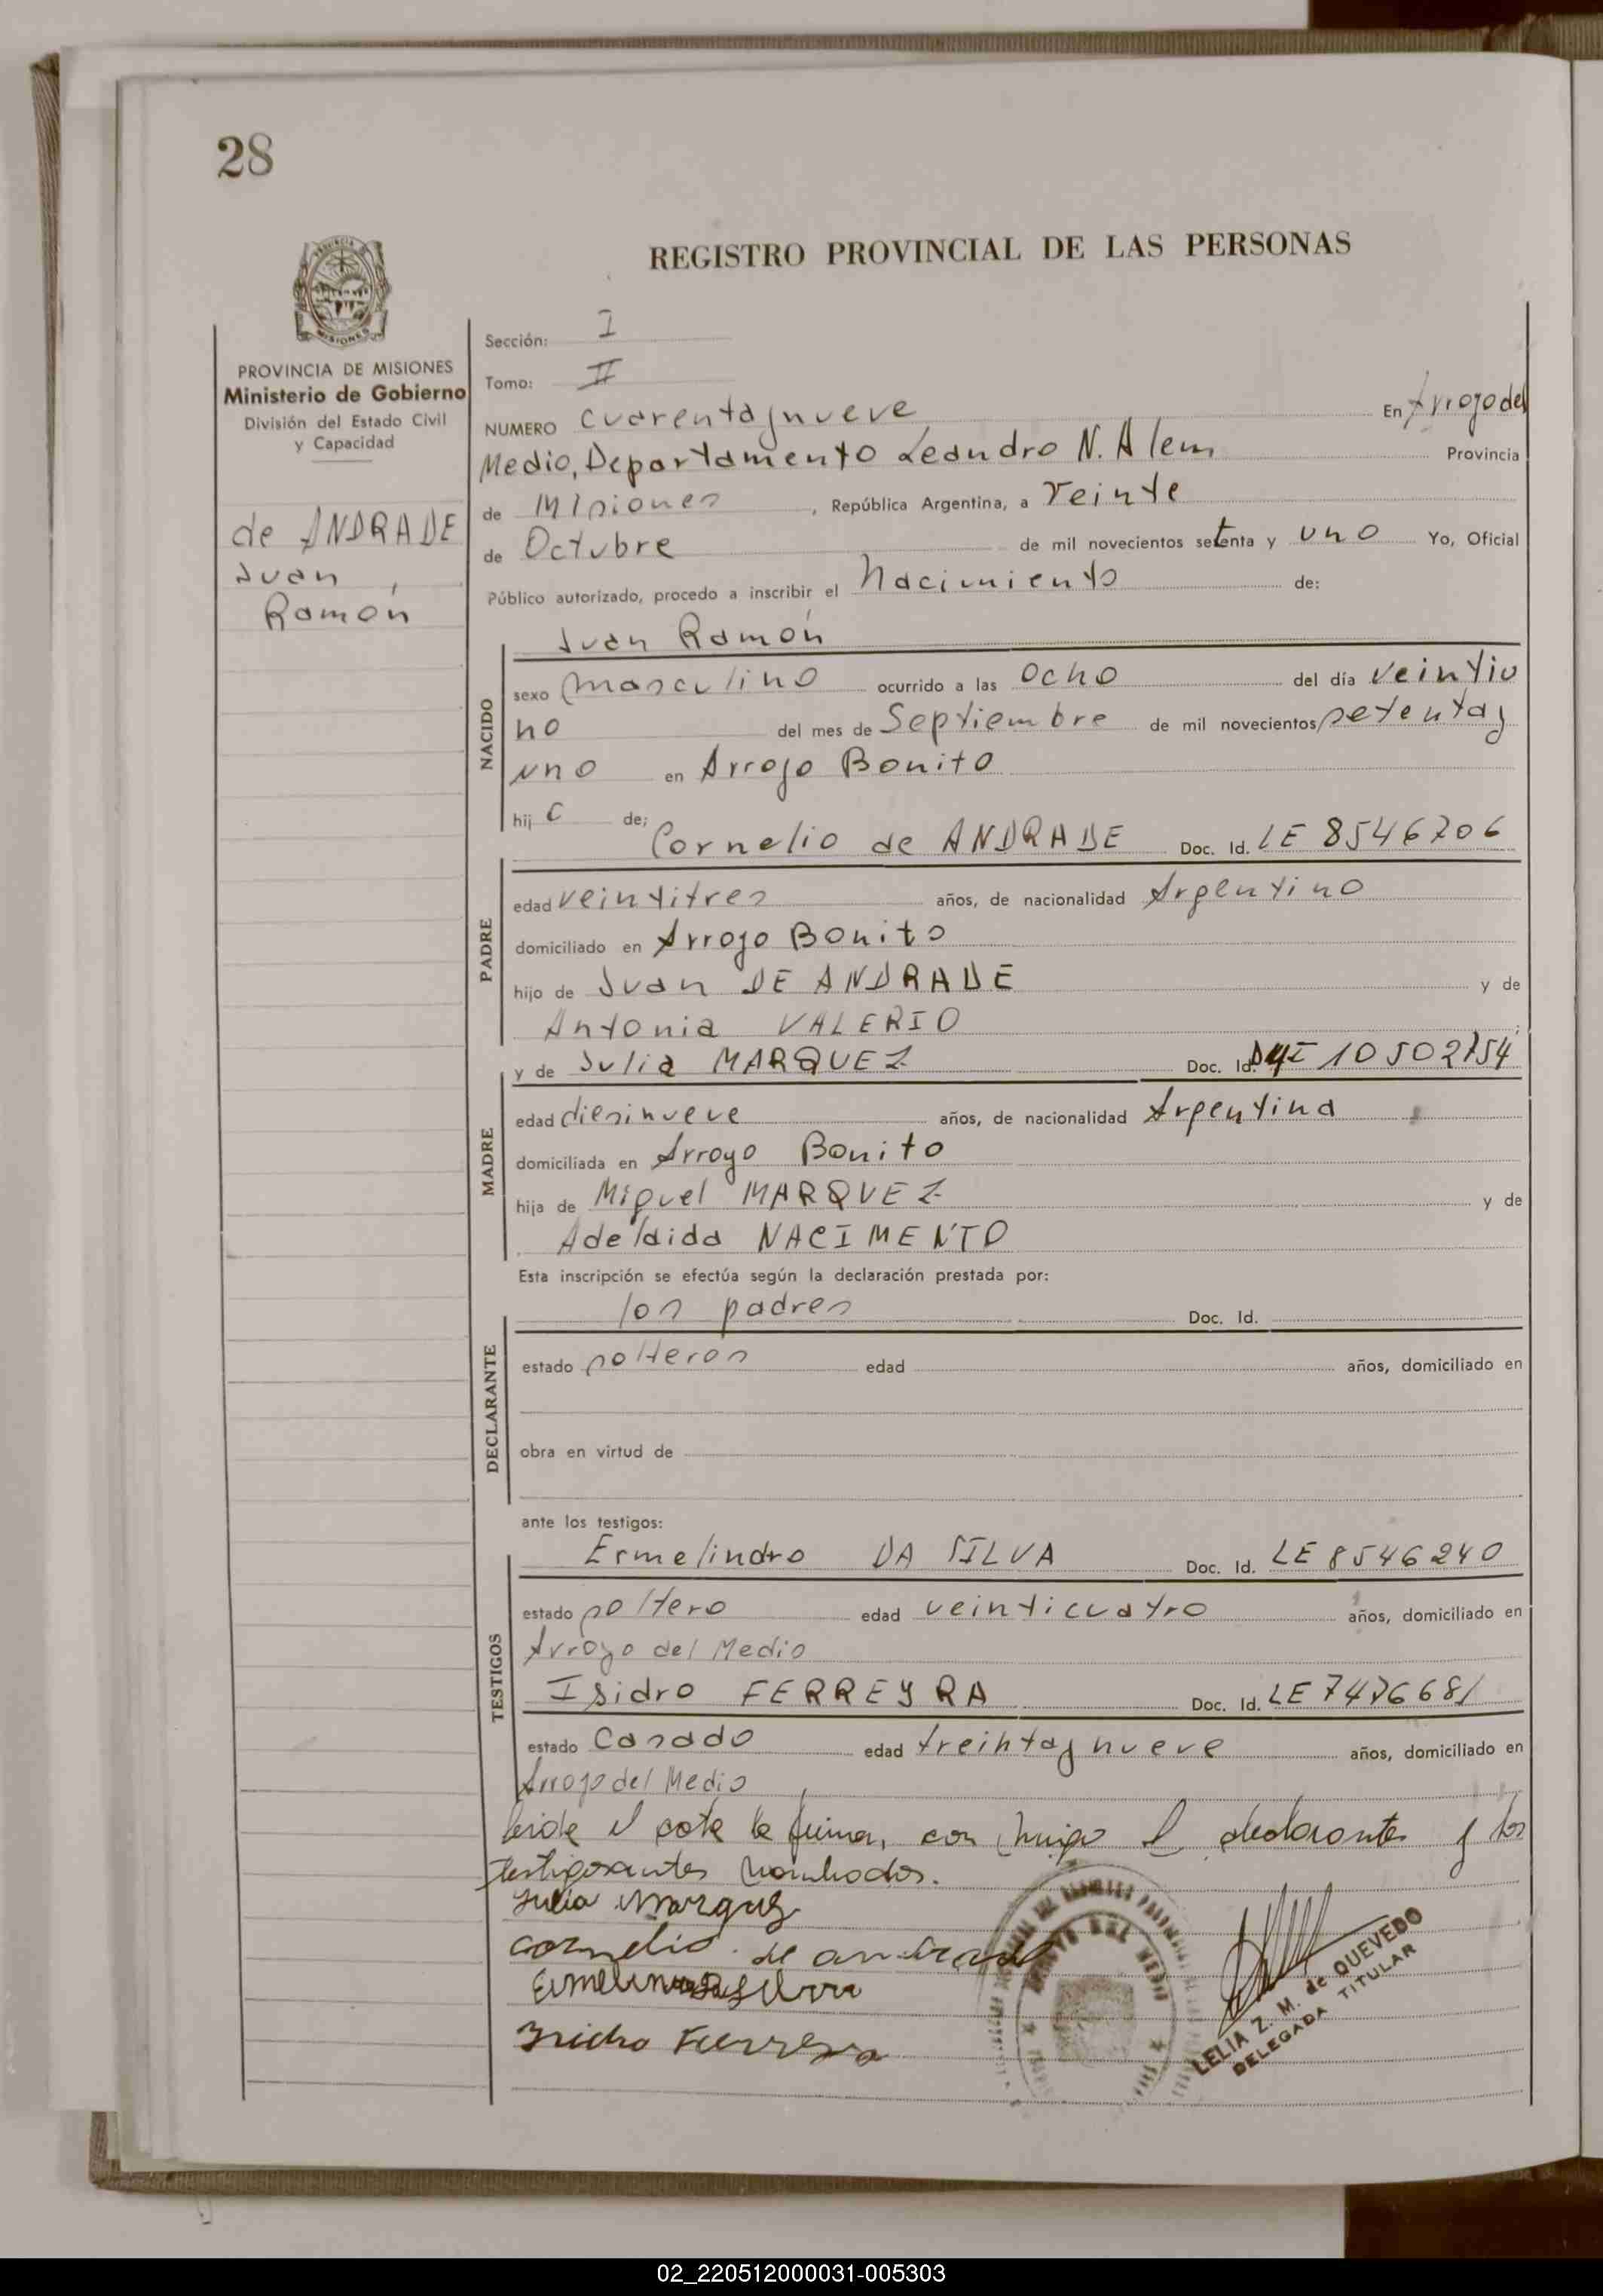 28
REGISTRO PROVINCIAL DE LAS PERSONAS
PROVINCIA DE MISIONES
Ministerio de Gobierno
División del Estado Civil
y Capacidad
de ANDRADE
Juan
Ramón
Sección: I
Tomo: II
NUMERO cuarenta y nueve En Arroyo del
Medio, Departamento Leandro N. Alem Provincia
de Misiones, República Argentina, a Veinte
de Octubre de mil novecientos setenta y uno Yo, Oficial
Público autorizado, procedo a inscribir el Nacimiento de:
Juan Ramón
NACIDO
sexo masculino ocurrido a las ocho del día veintiu
no del mes de Septiembre de mil novecientos setenta y
uno en Arroyo Bonito
hijo de;
Cornelio de ANDRADE Doc. Id. LE 8546706
PADRE
edad veintitres años, de nacionalidad Argentino
domiciliado en Arroyo Bonito
hijo de Juan DE ANDRADE y de
Antonia VALERIO
y de Julia MARQUEZ Doc. Id. DNI 10502754
MADRE
edad diesinueve años, de nacionalidad Argentina
domiciliada en Arroyo Bonito
hija de Miguel MARQUEZ y de
Adelaida NACIMENTO
Esta inscripción se efectúa según la declaración prestada por:
los padres Doc. Id.
DECLARANTE
estado solteros edad años, domiciliado en
obra en virtud de
ante los testigos:
Ermelindro DA SILVA Doc. Id. LE 8546240
TESTIGOS
estado soltero edad veinticuatro años, domiciliado en
Arroyo del Medio
Isidro FERREYRA Doc. Id. LE 7476681
estado Casado edad treinta y nueve años, domiciliado en
Arroyo del Medio
leida el acta la firman, con migo el declarantes y los
testigos antes nombrados.
Julia Marquez
cornelio de andrade
Isidro Ferreyra
LELIA Z. M. de QUEVEDO
DELEGADA TITULAR
02_220512000031-005303